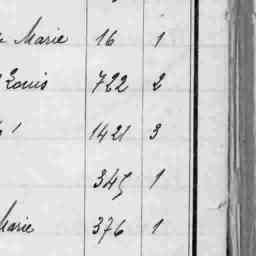 Marie 16 1
Louis 722 2
1421 3
345 1
Marie 376 1